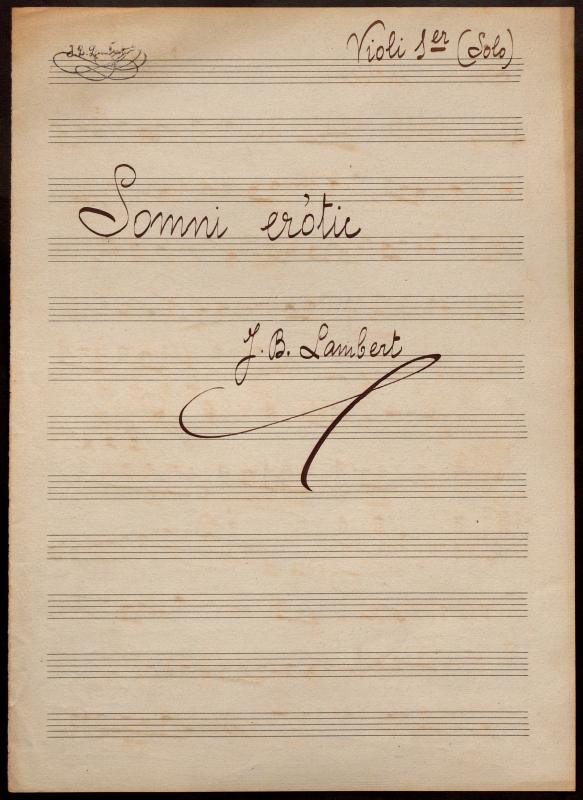 J. B. Lambert
Violí 1er (Solo)
Somni eròtic
J. B. Lambert